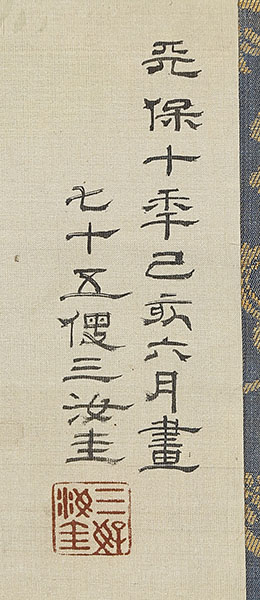 天保十年己亥六月畫
七十五僊三汝圭
三好
汝圭